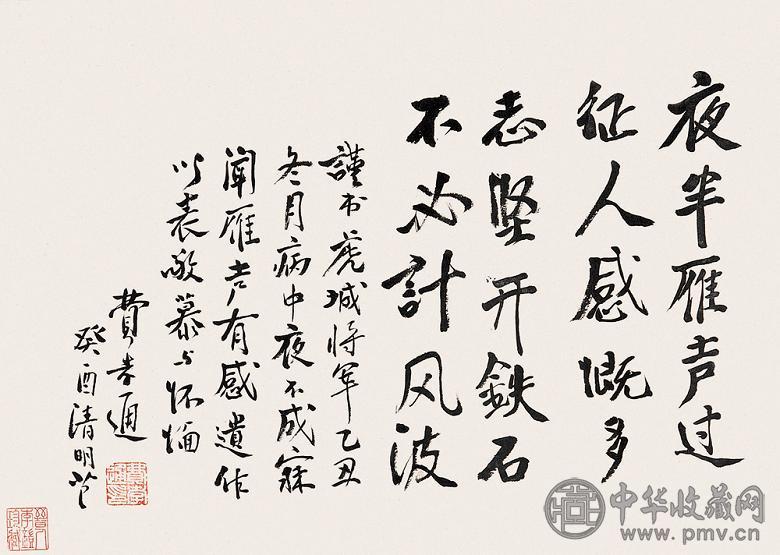 夜半雁声过
征人感慨多
志坚开鉄石
不必計风波
謹书虎城将军乙丑
冬月病中夜不成寐
闻雁声有感遺作
以表敬慕与怀缅
費孝通
癸酉清明节
中华收藏网
www.pmv.cn